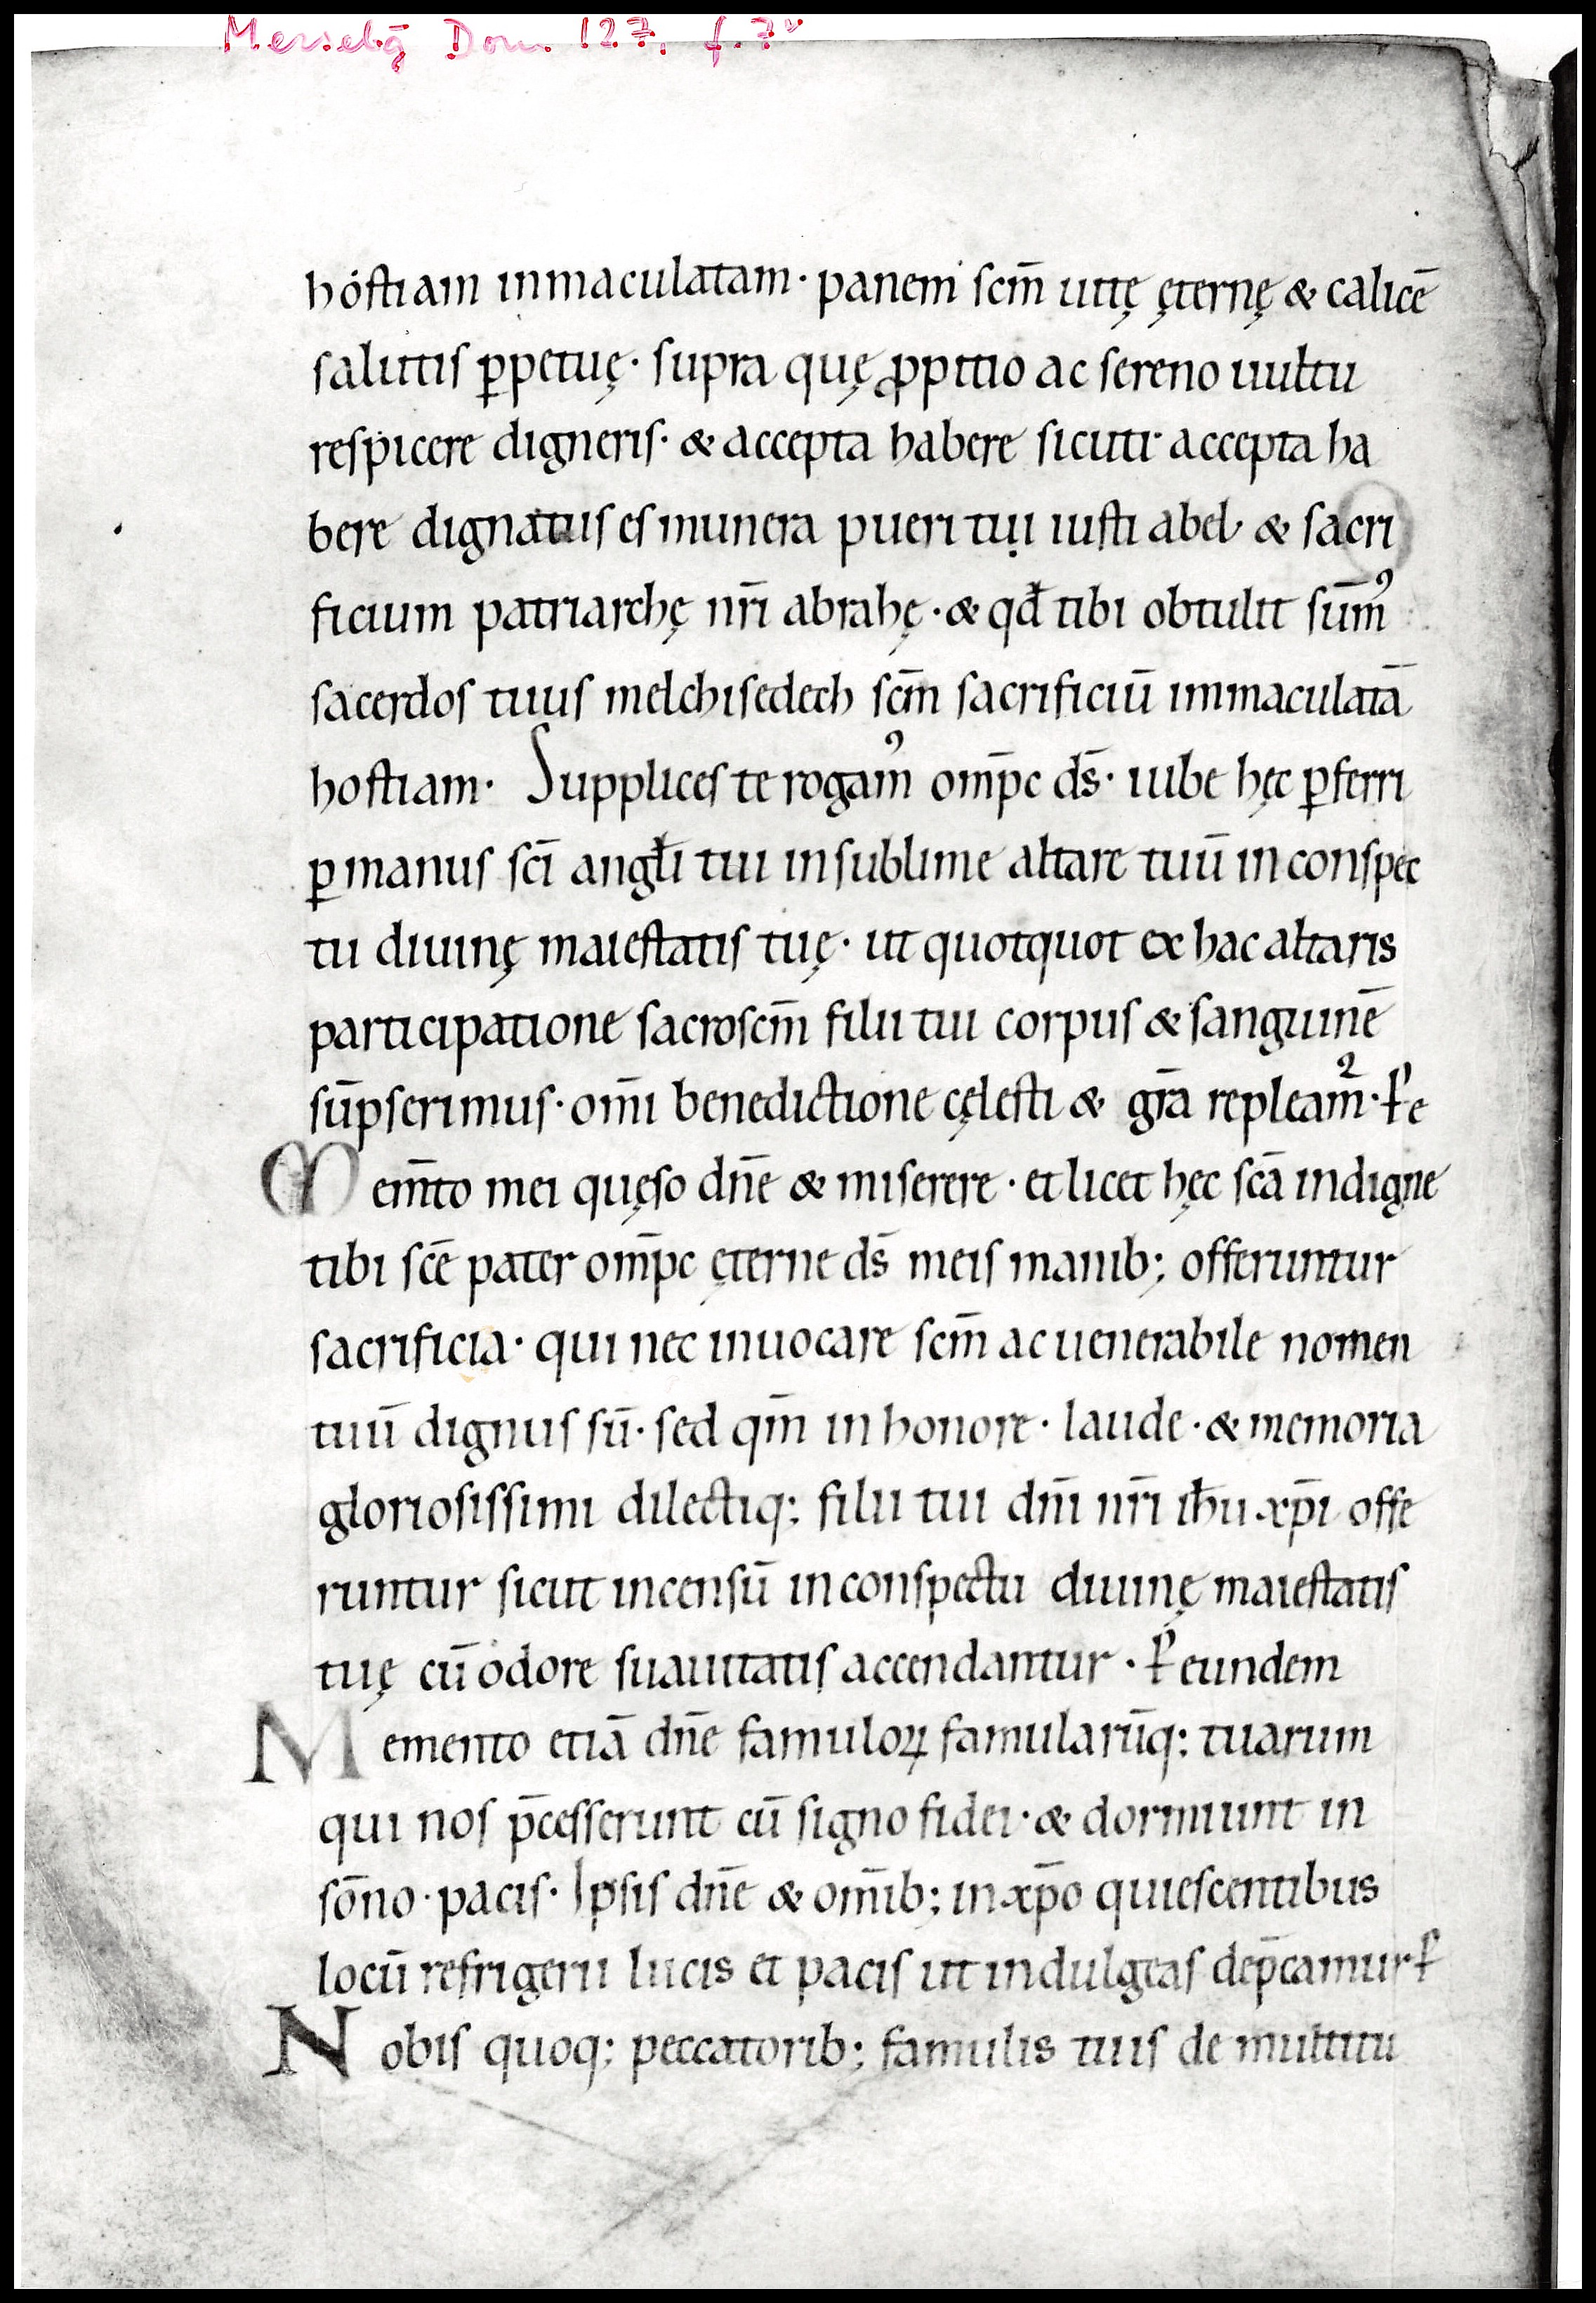 Merseb̄g Dom. 127, f. 7v
hostiam inmaculatam· panem scm̄ uitę ęternę & calicē
salutis ꝑpetuę· supra quę ꝓpitio ac sereno uultu
respicere digneris· & accepta habere sicuti accepta ha
bere dignatus es munera pueri tui iusti abel & sacri
ficium patriarchę nr̄i abrahę· & qđ tibi obtulit sūmꝰ
sacerdos tuus melchisedech scm̄ sacrificiū immaculatā
hostiam· Supplices te rogamꝰ omp̄c ds̄· iube hęc ꝑferri
ꝑ manus sci̅ angłi tui in sublime altare tuū in conspec
tu diuinę maiestatis tuę· ut quotquot ex hac altaris
participatione sacroscm̄ filii tui corpus & sanguinē
sūpserimus· om̄i benedictione cęlesti & gr̄a repleam̄ᷣ· Ꝑe
Mem̄to mei quęso dn̄e & miserere· et licet hęc scā indigne
tibi scē pater omp̄c ęterne ds̄ meis manib; offeruntur
sacrificia· qui nec inuocare scm̄ ac uenerabile nomen
tuū dignus sū· sed qm̄ in honore· laude· & memoria
gloriosissimi dilectiq; filii tui dn̄i nr̄i ih̄u xp̄i offe
runtur sicut incensū in conspectu diuinę maiestatis
tuę cū odore suauitatis accendantur· Ꝑ eundem
Memento etiā dn̄e famuloꝝ famularūq; tuarum
qui nos p̄cesserunt cū signo fidei· & dormiunt in
sōno· pacis· Ipsis dn̄e & om̄ib; in xp̄o quiescentibus
locū refrigerii lucis et pacis ut indulgeas dep̄camur Ꝑ
Nobis quoq; peccatorib; famulis tuis de multitu